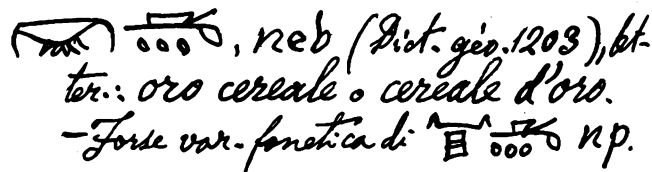 , neb (Dict. géo. 1203), let-
ter.: oro cereale o cereale d'oro.
— Forse var. fonetica di np.